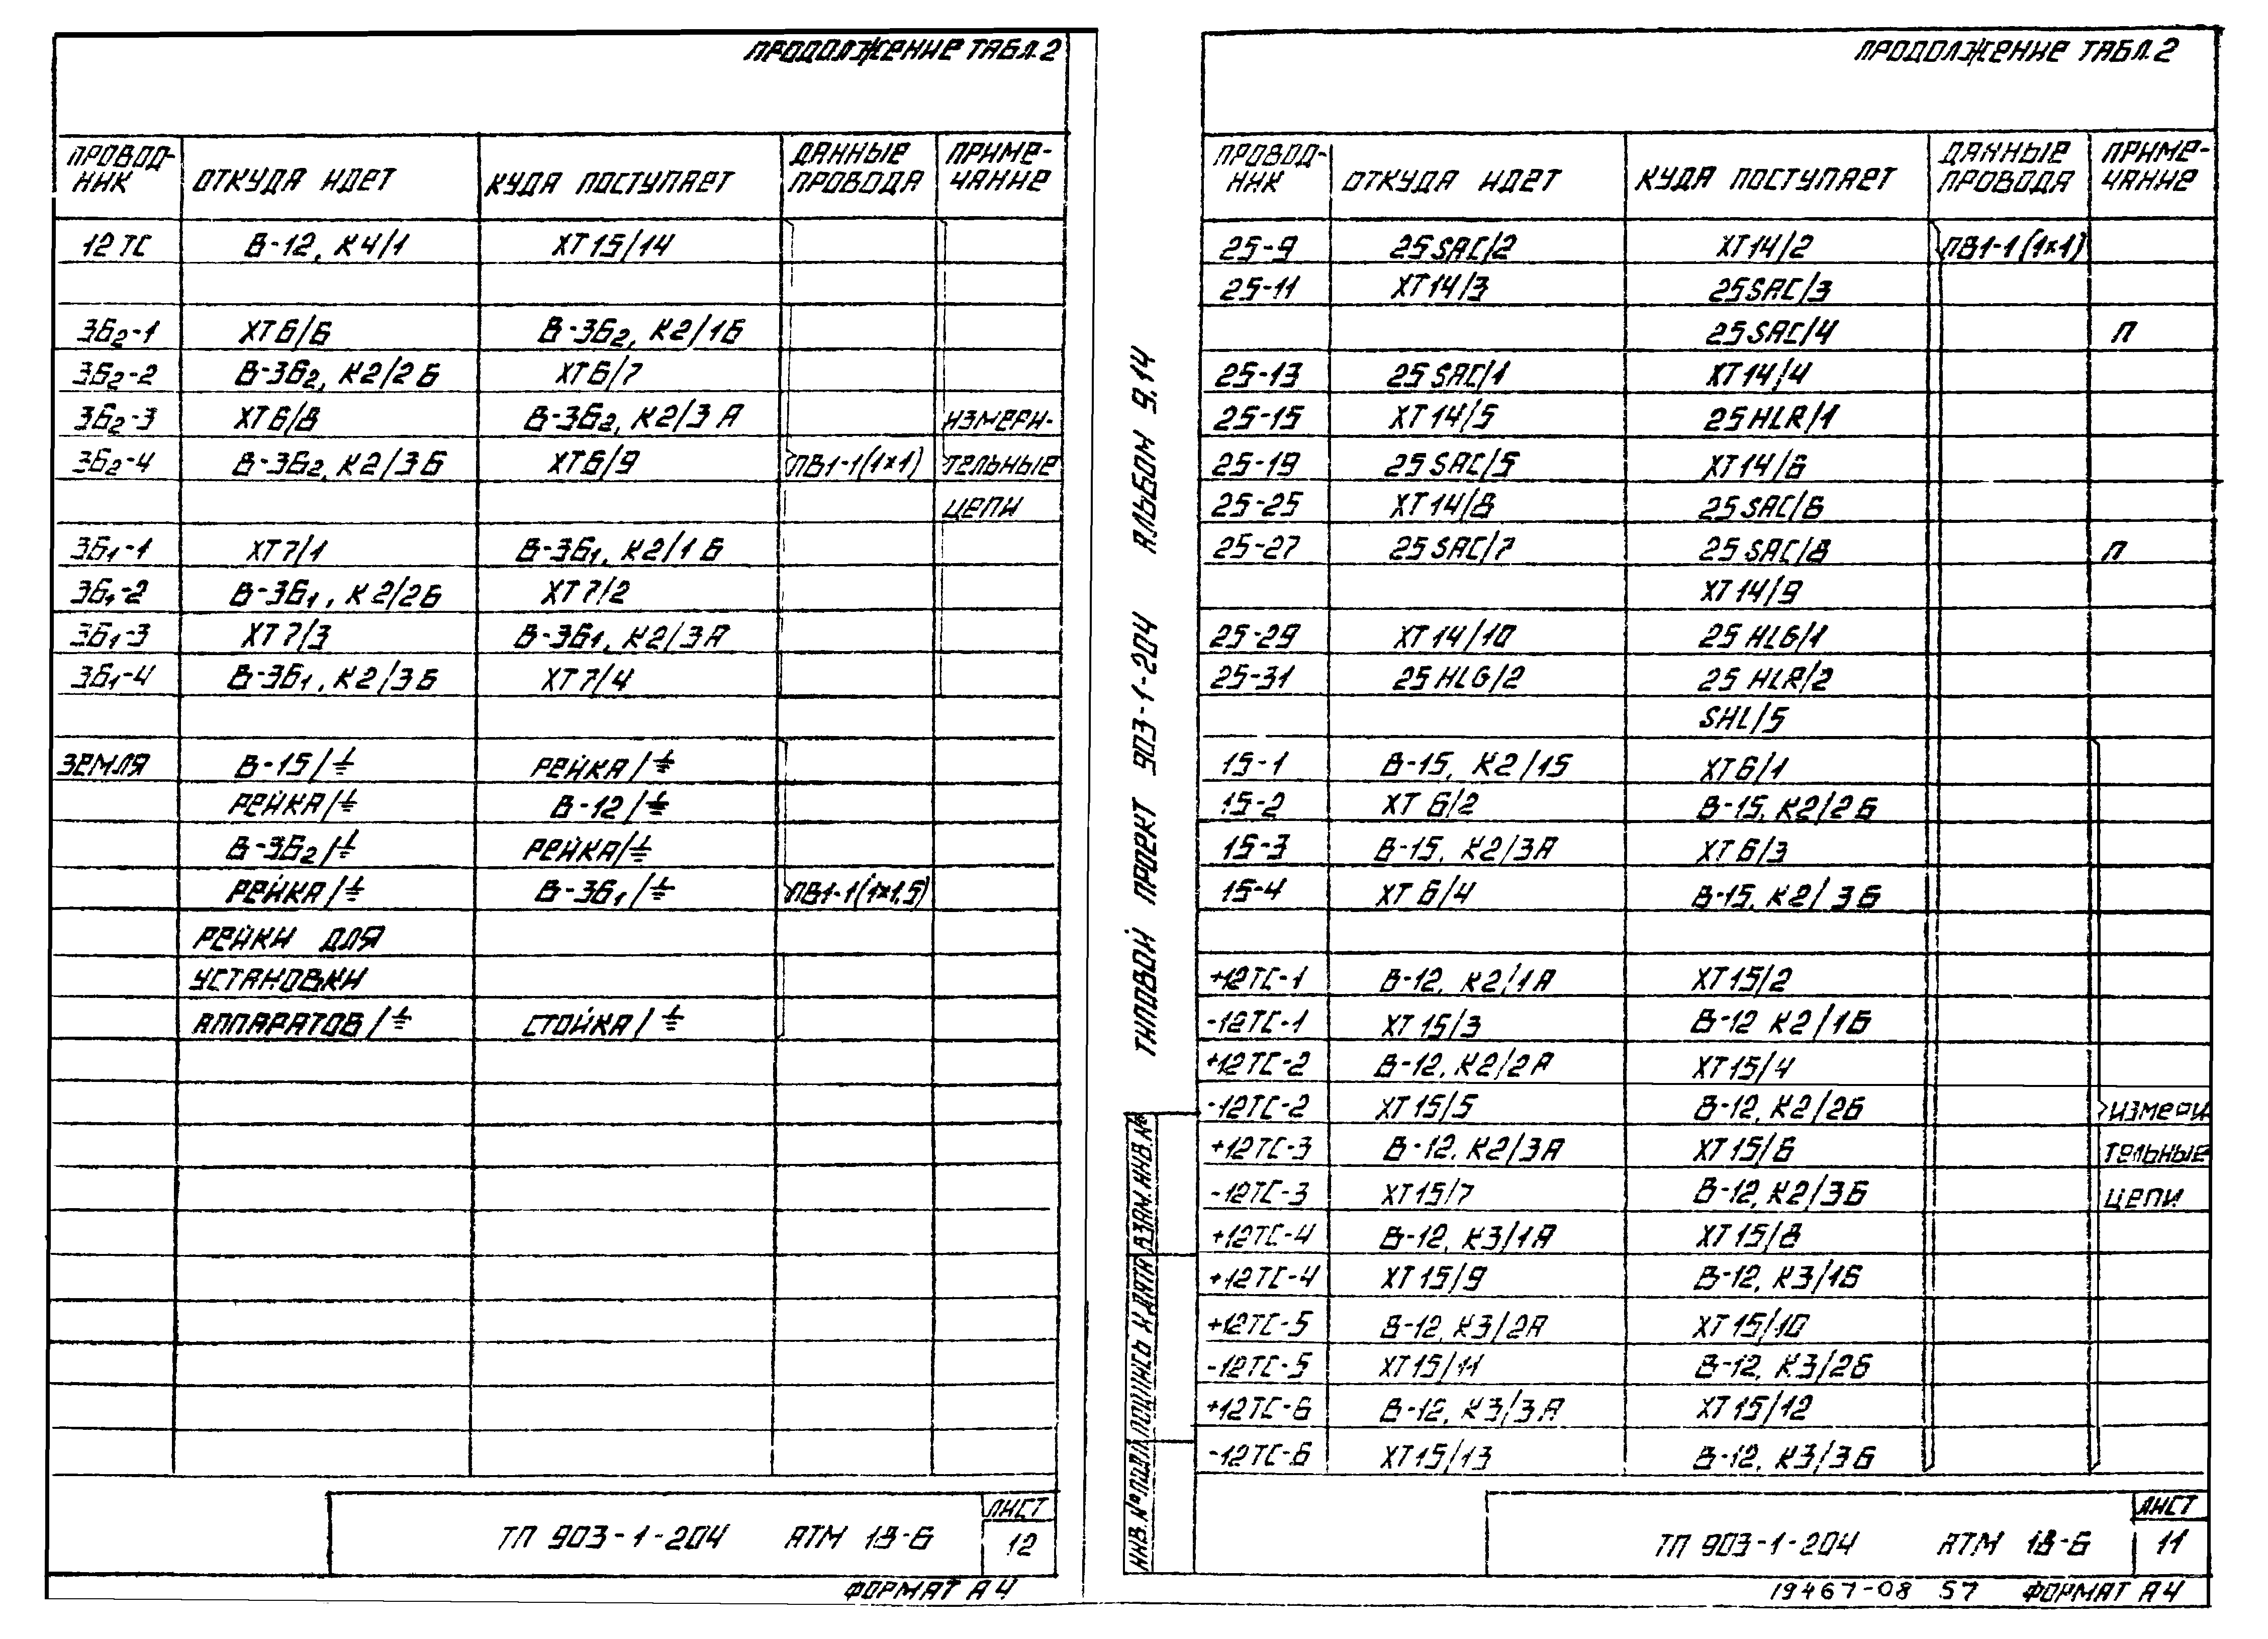 ПРОДОЛЖЕНИЕ ТАБЛ.2
ПРОВОД-НИК ОТКУДА ИДЕТ КУДА ПОСТУПАЕТ ДАННЫЕ ПРОВОДА ПРИМЕ-ЧАНИЕ
12ТС В-12, К4/1 XT15/14
3Б2-1 XT6/6 В-3Б2, К2/1Б
3Б2-2 В-3Б2, К2/2Б XT6/7
3Б2-3 XT6/8 В-3Б2, К2/3А ИЗМЕРИ-
3Б2-4 В-3Б2, К2/3Б XT6/9 ПВ1-1(1×1) ТЕЛЬНЫЕ
ЦЕПИ
3Б1-1 XT7/1 В-3Б1, К2/1Б
3Б1-2 В-3Б1, К2/2Б XT7/2
3Б1-3 XT7/3 В-3Б1, К2/3А
3Б1-4 В-3Б1, К2/3Б XT7/4
ЗЕМЛЯ В-15/⏚ РЕЙКА/⏚
РЕЙКА/⏚ В-12/⏚
В-3Б2/⏚ РЕЙКА/⏚
РЕЙКА/⏚ В-3Б1/⏚ ПВ1-1(1×1,5)
РЕЙКИ ДЛЯ
УСТАНОВКИ
АППАРАТОВ/⏚ СТОЙКА/⏚
ТП 903-1-204 АТМ 18-6 ЛИСТ
12
ФОРМАТ А4
ТИПОВОЙ ПРОЕКТ 903-1-204 АЛЬБОМ 9.14
ИНВ.№ПОДЛ. ПОДПИСЬ И ДАТА ВЗАМ.ИНВ.№
ПРОДОЛЖЕНИЕ ТАБЛ.2
ПРОВОД-НИК ОТКУДА ИДЕТ КУДА ПОСТУПАЕТ ДАННЫЕ ПРОВОДА ПРИМЕ-ЧАНИЕ
25-9 25SAC/2 XT14/2 ПВ1-1(1×1)
25-11 XT14/3 25SAC/3
25SAC/4 П
25-13 25SAC/1 XT14/4
25-15 XT14/5 25HLR/1
25-19 25SAC/5 XT14/6
25-25 XT14/8 25SAC/6
25-27 25SAC/7 25SAC/8 П
XT14/9
25-29 XT14/10 25HLG/1
25-31 25HLG/2 25HLR/2
SHL/5
15-1 В-15, К2/15 XT6/1
15-2 XT6/2 В-15, К2/2Б
15-3 В-15, К2/3А XT6/3
15-4 XT6/4 В-15, К2/3Б
+12ТС-1 В-12, К2/1А XT15/2
-12ТС-1 XT15/3 В-12 К2/1Б
+12ТС-2 В-12, К2/2А XT15/4
-12ТС-2 XT15/5 В-12, К2/2Б ИЗМЕРИ
+12ТС-3 В-12, К2/3А XT15/6 ТЕЛЬНЫЕ
-12ТС-3 XT15/7 В-12, К2/3Б ЦЕПИ
+12ТС-4 В-12, К3/1А XT15/8
+12ТС-4 XT15/9 В-12, К3/1Б
+12ТС-5 В-12, К3/2А XT15/10
-12ТС-5 XT15/11 В-12, К3/2Б
+12ТС-6 В-12, К3/3А XT15/12
-12ТС-6 XT15/13 В-12, К3/3Б
ТП 903-1-204 АТМ 18-6 ЛИСТ
11
19467-08 57 ФОРМАТ А4